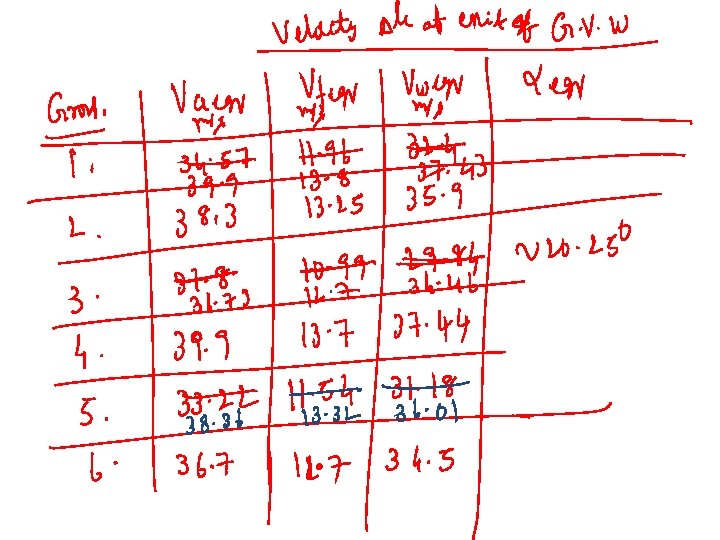 Velocity Δle at exit of G.V.W
Group. | Va exp m/s | Vf exp m/s | Vw exp m/s | α exp
1. | 34.57 39.9 | 11.96 13.8 | 32.4 37.43
2. | 38.3 | 13.25 | 35.9
3. | 31.8 31.73 | 10.99 12.7 | 29.84 34.46 | ~20.25°
4. | 39.9 | 13.7 | 37.44
5. | 33.22 38.36 | 11.54 13.32 | 31.18 36.01
6. | 36.7 | 12.7 | 34.5